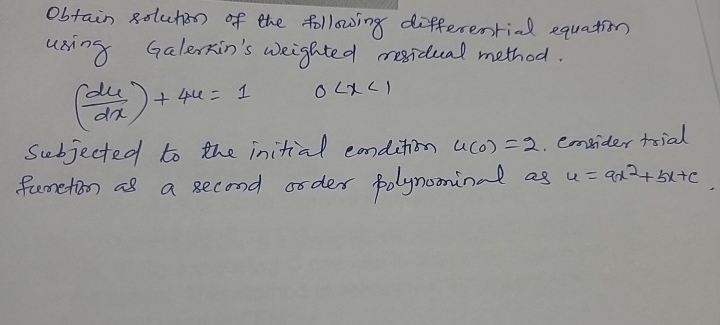 Obtain solution of the following differential equation
using Galerkin's weighted residual method.
(du/dx) + 4u = 1 0<x<1
Subjected to the initial condition u(0) = 2. consider trial
function as a second order polynominal as u = ax²+bx+c.